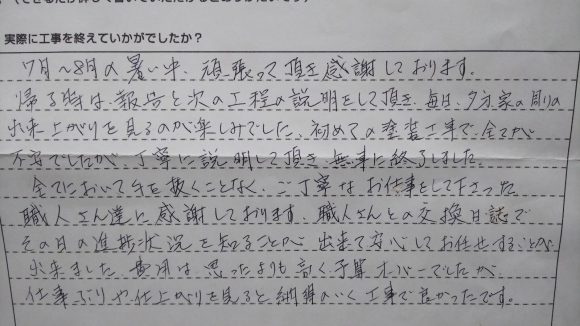 (できるだけ詳しく書いていただけるとありがたいです)
実際に工事を終えていかがでしたか?
7月~8月の暑い中、頑張って頂き感謝しております。
帰る時は、報告と次の工程の説明をして頂き、毎日、夕方家の周りの
出来上がりを見るのが楽しみでした。初めての塗装工事で、全てが
不安でしたが、丁寧に説明して頂き無事に終了しました。
全てにおいて手を抜くことなく、ご丁寧なお仕事をして下さった
職人さん達に感謝しております。職人さんとの交換日誌で
その日の進捗状況を知ることが、出来て安心してお任せすることが
出来ました。費用は思ったよりも高く予算オーバーでしたが、
仕事ぶりや仕上がりを見ると納得のいく工事で良かったです。